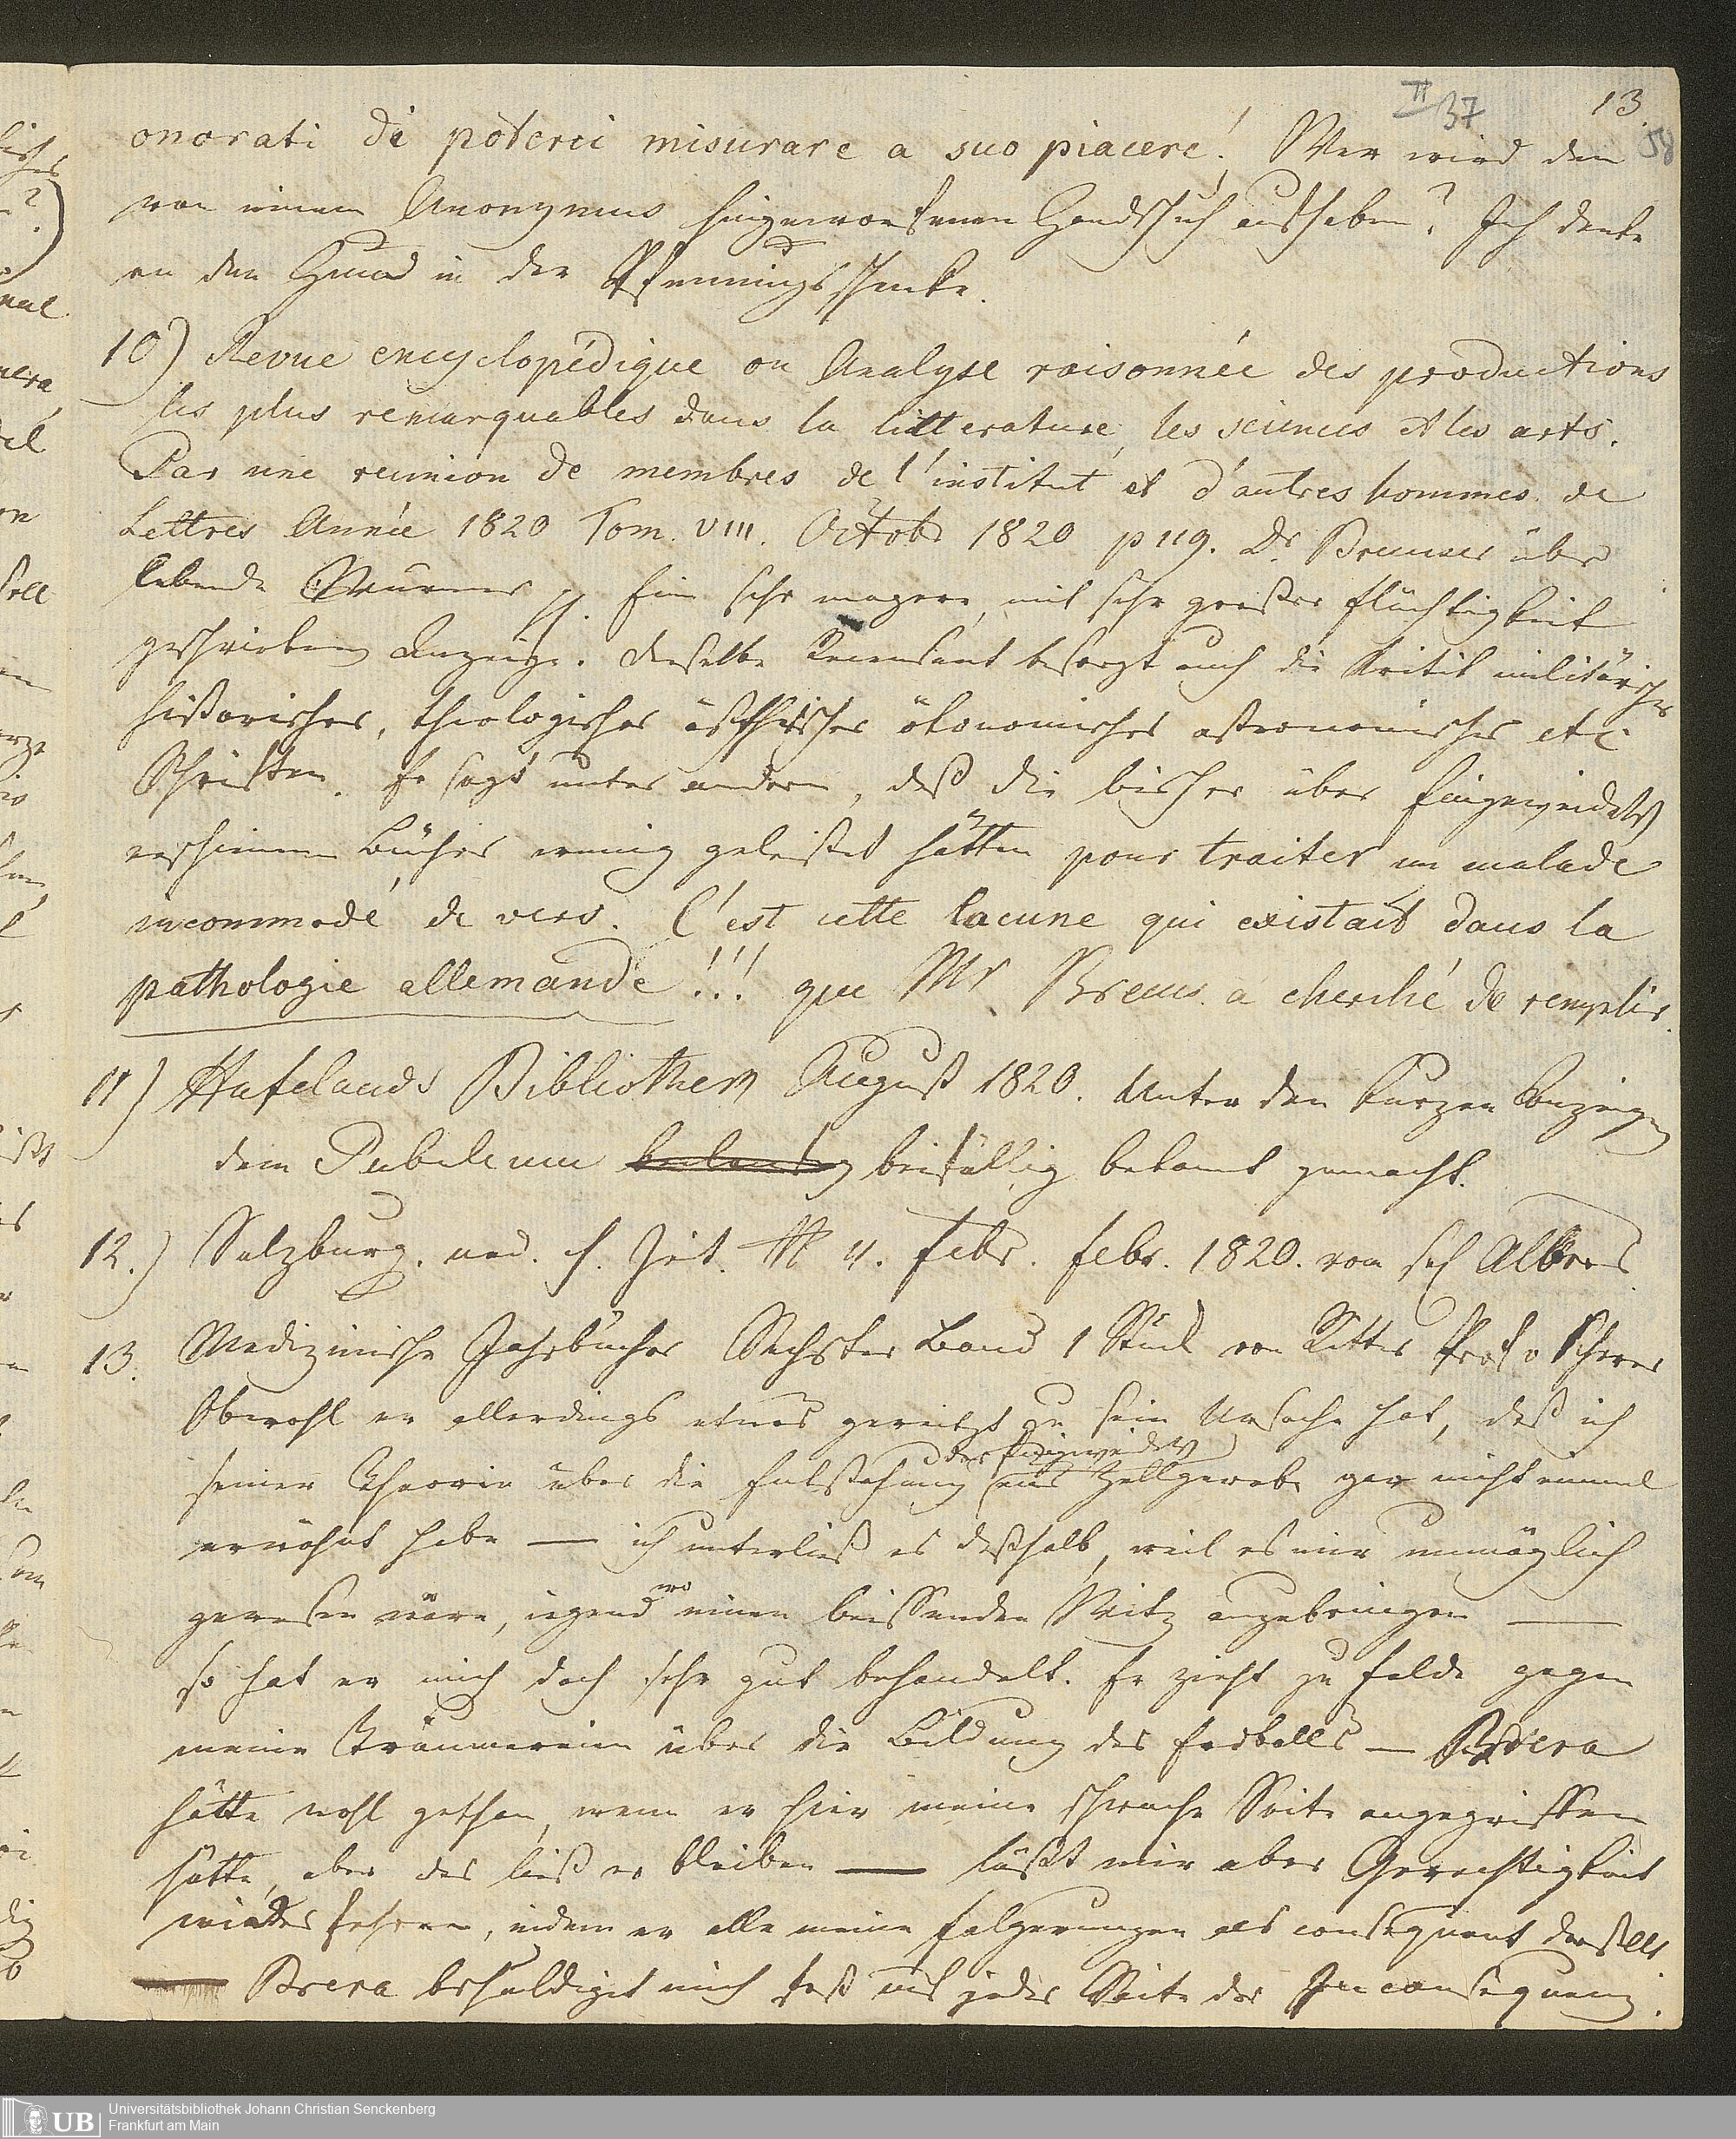 II 37
13.
58
onorati di poterci misurare a suo piacere! Wer wird den
von einem Anonymus hingeworfenen Handschuh aufheben? Ich denke
an den Hund in der Pfennings schenke.
10) Revue encyclopédique ou Analyse raisonnée des productions
les plus remarquables dans la litterature, les sciences et les arts.
Par une reunion de membres de l'institut et d'autres hommes de
Lettres Année 1820 Tom. VIII. Octobr 1820 p 119. Dr Bremser über
lebende Würmer pp. Eine sehr magere, mit sehr großer Flüchtigkeit
geschriebene Anzeige. Derselbe Recensent besorgt auch die Kritik militärischer
historischer, theologischer ästhetischer ökonomischer astronomischer etc
Schriften. Er sagt unter andern, daß die bisher über Eingeweidew
erschienenen Bücher wenig geleistet hätten pour traiter un malade
incommodé de vers. C'est cette lacune qui existait dans la
pathologie allemande!!! que Mr Brems. a cherché de remplir.
11) Hufelands Bibliothek August 1820. Unter den kurzen Anzeigen
dem Publicum beifällig bekannt gemacht.
12.) Salzburg. med. ch. Zeit. N 11. Febr. febr. 1820. von sel Albers.
13. Medizinische Jahrbücher Sechster Band 1 Stück von Ritter Prof v Scherer
Obwohl er allerdings etwas gereitzt zu sein Ursache hat, daß ich
der Eingeweidew
seiner Theorie über die Entstehung aus Zellgewebe gar nicht einmal
erwähnt habe — ich unterließ es deßhalb, weil es mir unmöglich
gewesen wäre, irgend wo einen beissenden Witz anzubringen —
so hat er mich doch sehr gut behandelt. Er zieht zu Felde gegen
meine Träumereien über die Bildung des Erdballs — Brera
hätte wohl gethan, wenn er hier meine schwache Seite angegriffen
hätte, aber das ließ er bleiben — läßt mir aber Gerechtigkeit
wiederfahren, indem er alle meine Folgerungen als consequent darstellt.
— Brera beschuldiget mich fast auf jeder Seite der Inconsequenz.
Universitätsbibliothek Johann Christian Senckenberg
Frankfurt am Main
UB